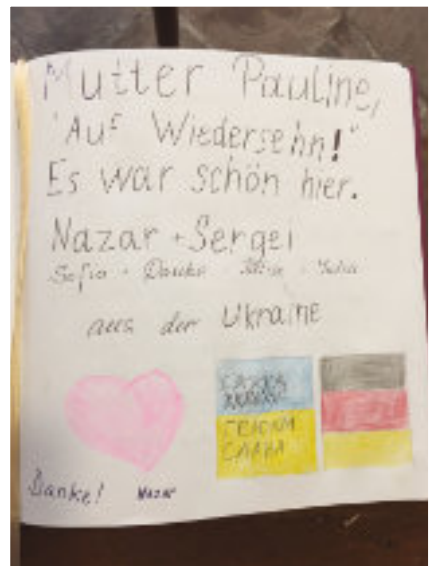 Mutter Pauline,
"Auf Wiedersehn!"
Es war schön hier.
Nazar + Sergei
Sofia +
aus der Ukraine
СЛАВА
ГЕРОЯМ
СЛАВА
Danke! Nazar